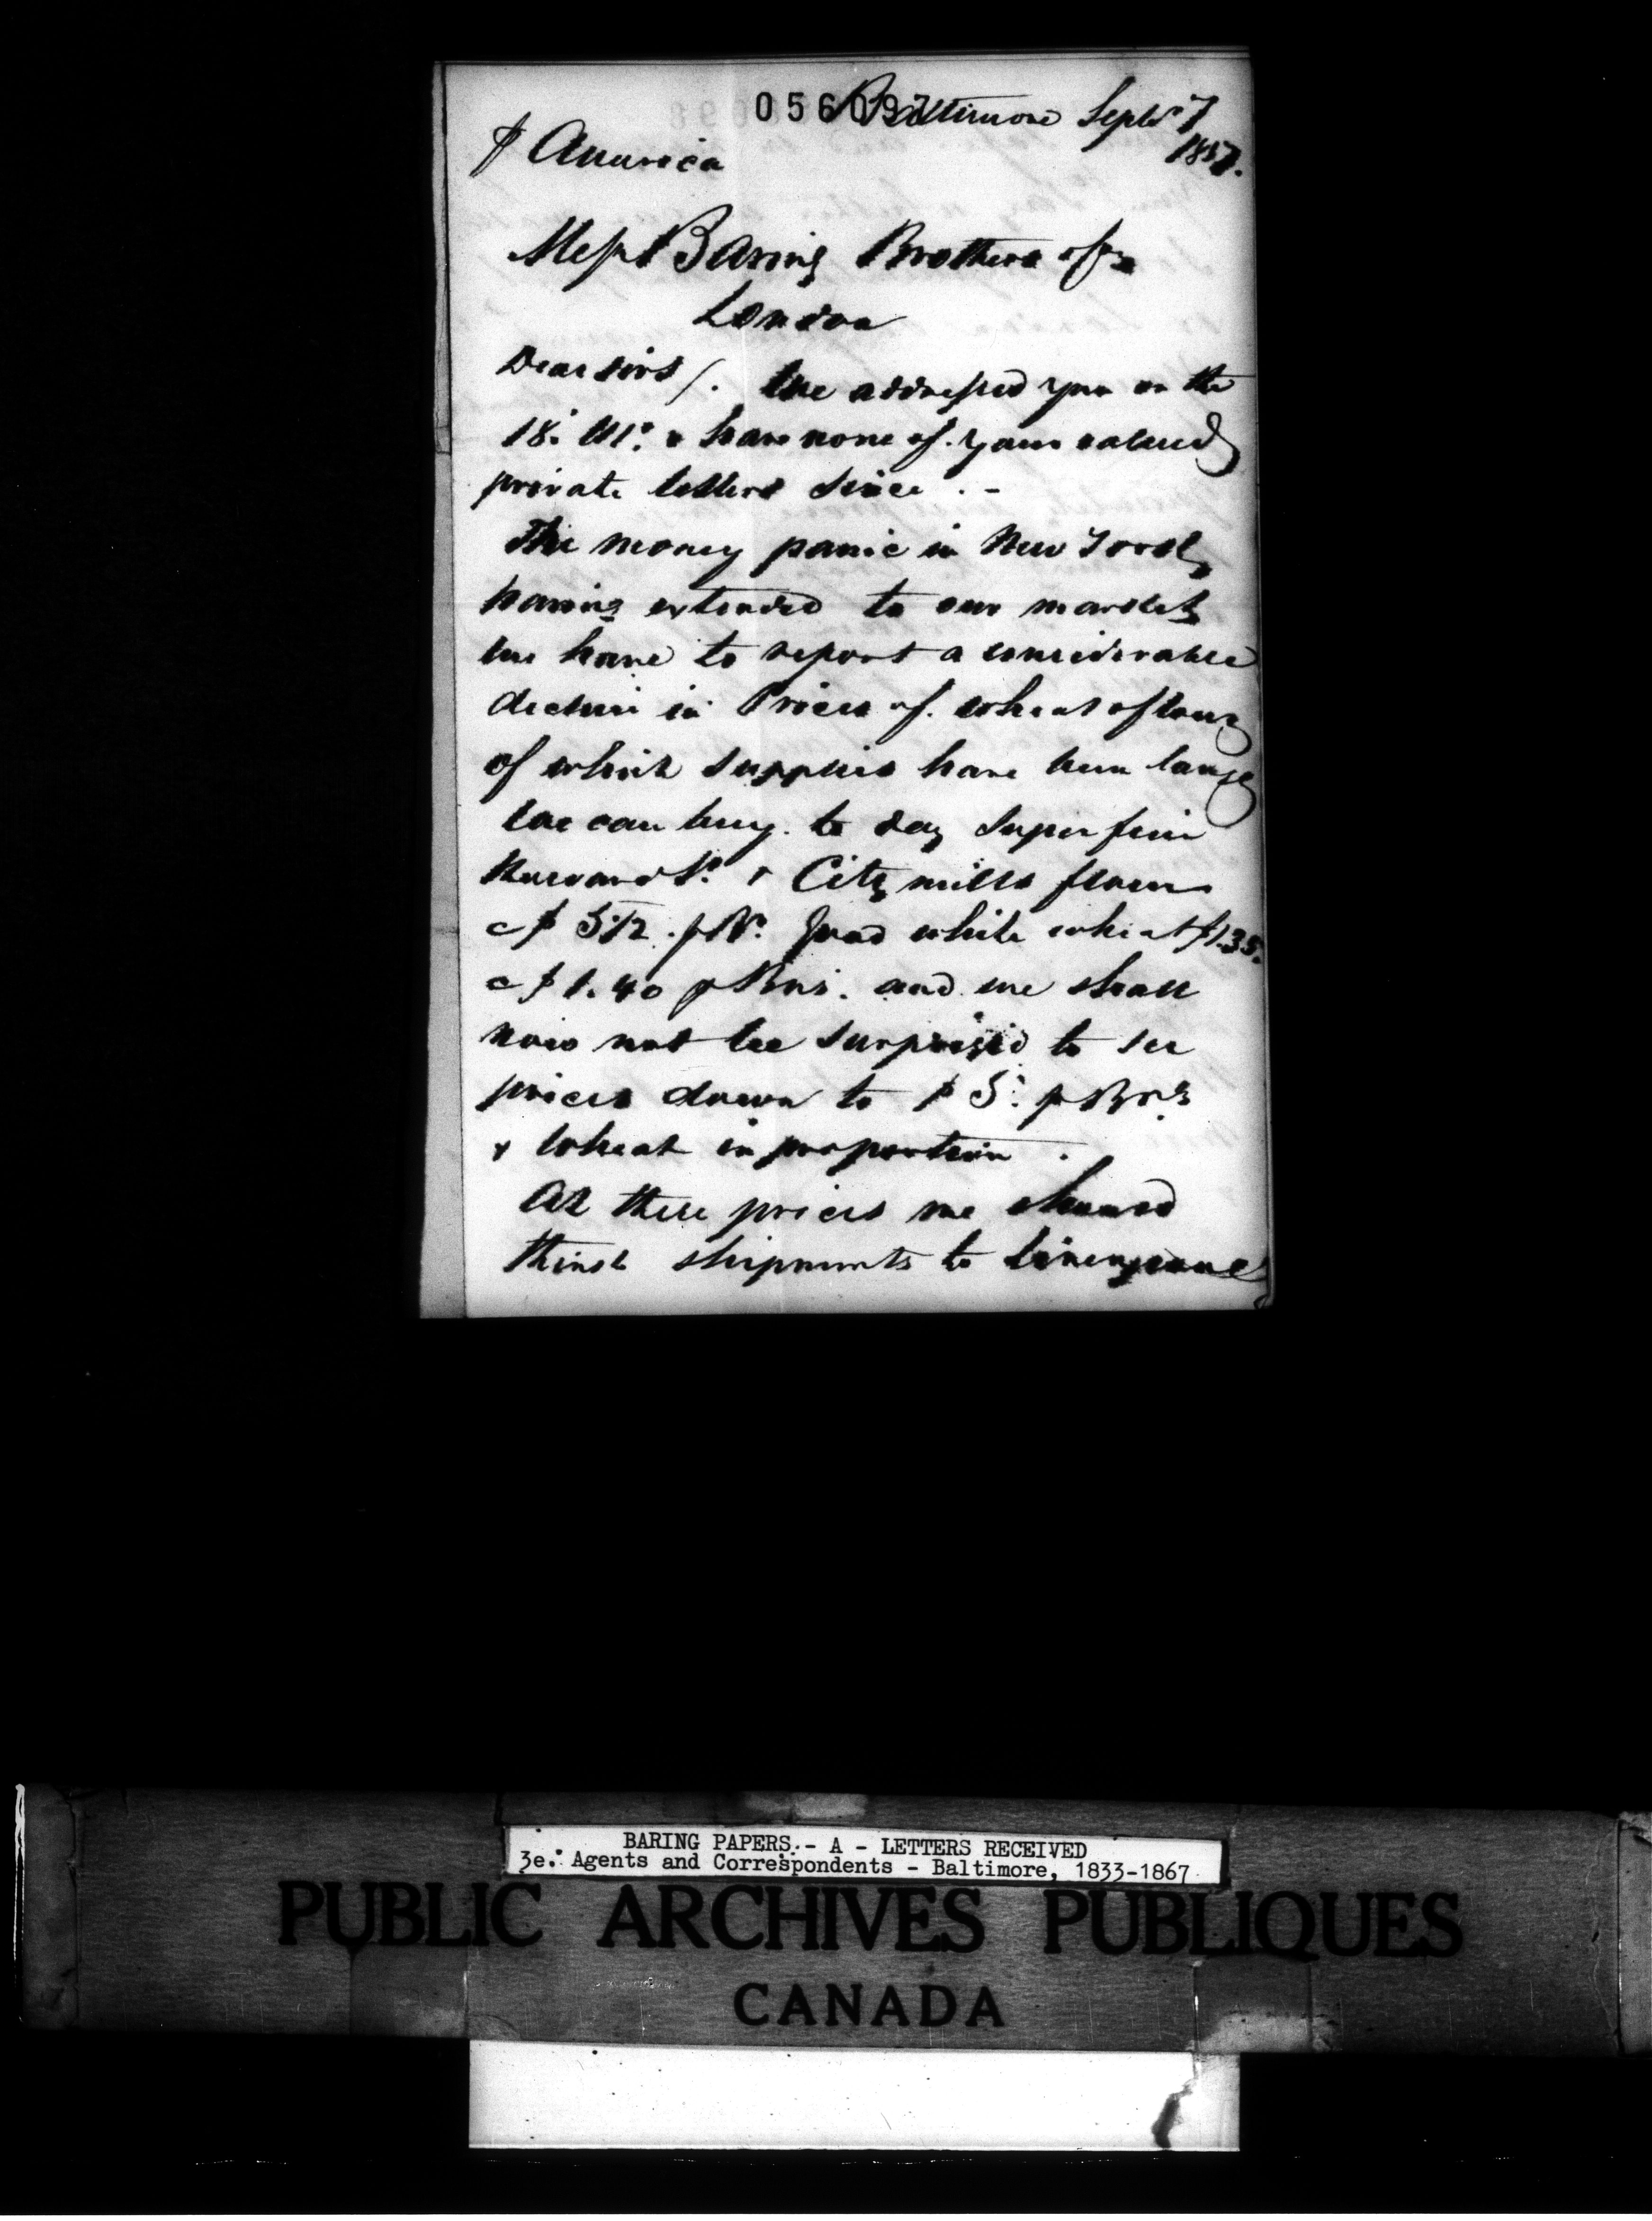 056097
Baltimore Septr 7
1857.
p America
Messrs Baring Brothers & Co
London
Dear Sirs /. We addressed you on the
18. Ulto. & have none of your valued
private letters since . -
The money panic in New York
having extended to our market
we have to report a considerable
decline in Prices of wheat & flour
of which supplies have been large
we can buy to day Superfine
Howard St. & City mills flour
@ $ 5 1/2 p Br. Good white wheat $1.35.
@ $ 1.40 p Bus. and we shall
now not be surprised to see
prices down to $ 5. p Br.
& Wheat in proportion .
At these prices we should
think shipments to Liverpool
BARING PAPERS.- A - LETTERS RECEIVED
3e. Agents and Correspondents - Baltimore, 1833-1867
PUBLIC ARCHIVES PUBLIQUES
CANADA